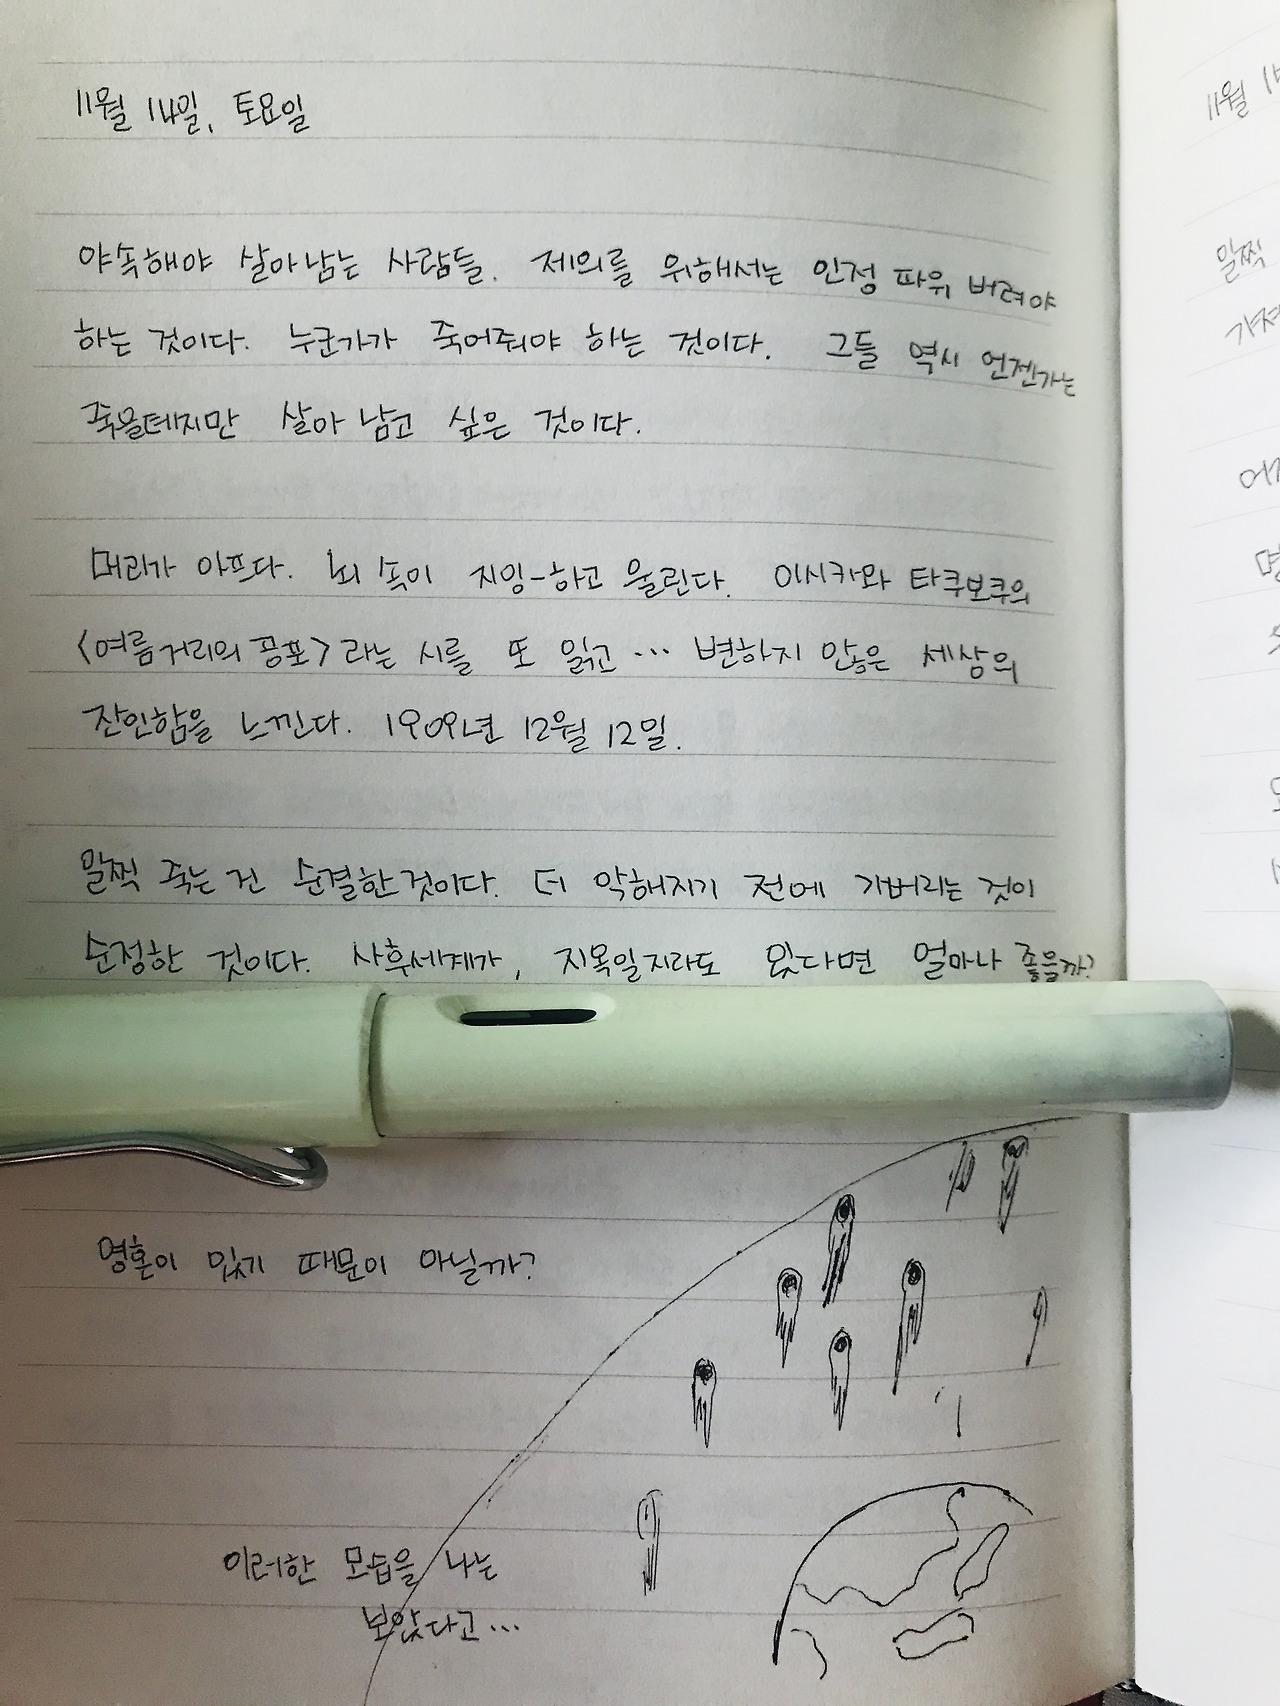 11월 14일, 토요일
야속해야 살아남는 사람들. 제의를 위해서는 인정 따위 버려야
하는 것이다. 누군가가 죽어줘야 하는 것이다. 그들 역시 언젠가는
죽을테지만 살아 남고 싶은 것이다.
머리가 아프다. 뇌 속이 지잉-하고 울린다. 이시카와 타쿠보쿠의
<여름 거리의 공포>라는 시를 또 읽고… 변하지 않은 세상의
잔인함을 느낀다. 1909년 12월 12일.
말찍 죽는 건 순결한 것이다. 더 악해지기 전에 가버리는 것이
순정한 것이다. 사후세계가, 지옥일지라도 있다면 얼마나 좋을까?
영혼이 있기 때문이 아닐까?
이러한 모습을 나는
보았다고…
11월
말찍
가져